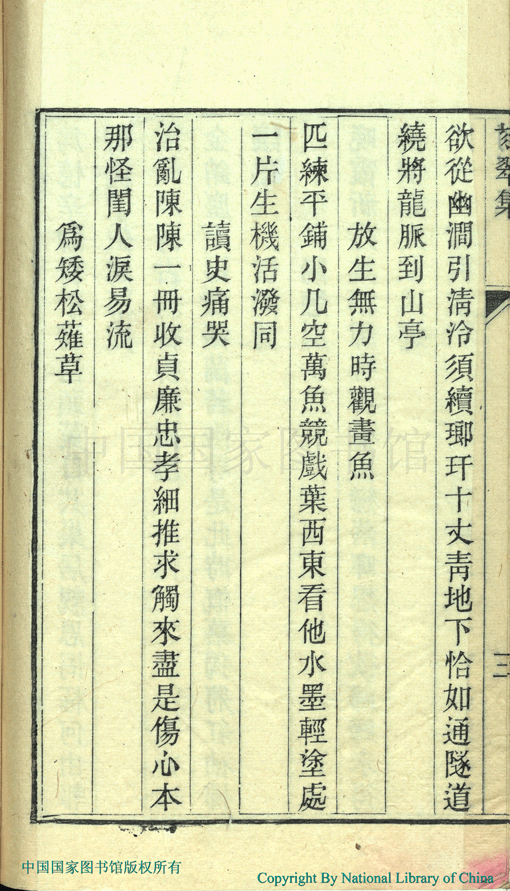 翠集
三
欲從幽澗引淸泠須續瑯玕十丈靑地下恰如通隧道
繞將龍脈到山亭
放生無力時觀畫魚
匹練平鋪小几空萬魚競戲葉西東看他水墨輕塗處
一片生機活潑同
讀史痛哭
治亂陳陳一冊收貞廉忠孝細推求觸來盡是傷心本
那怪閨人淚易流
爲矮松薙草
中国国家图书馆
中国国家图书馆版权所有
Copyright By National Library of China